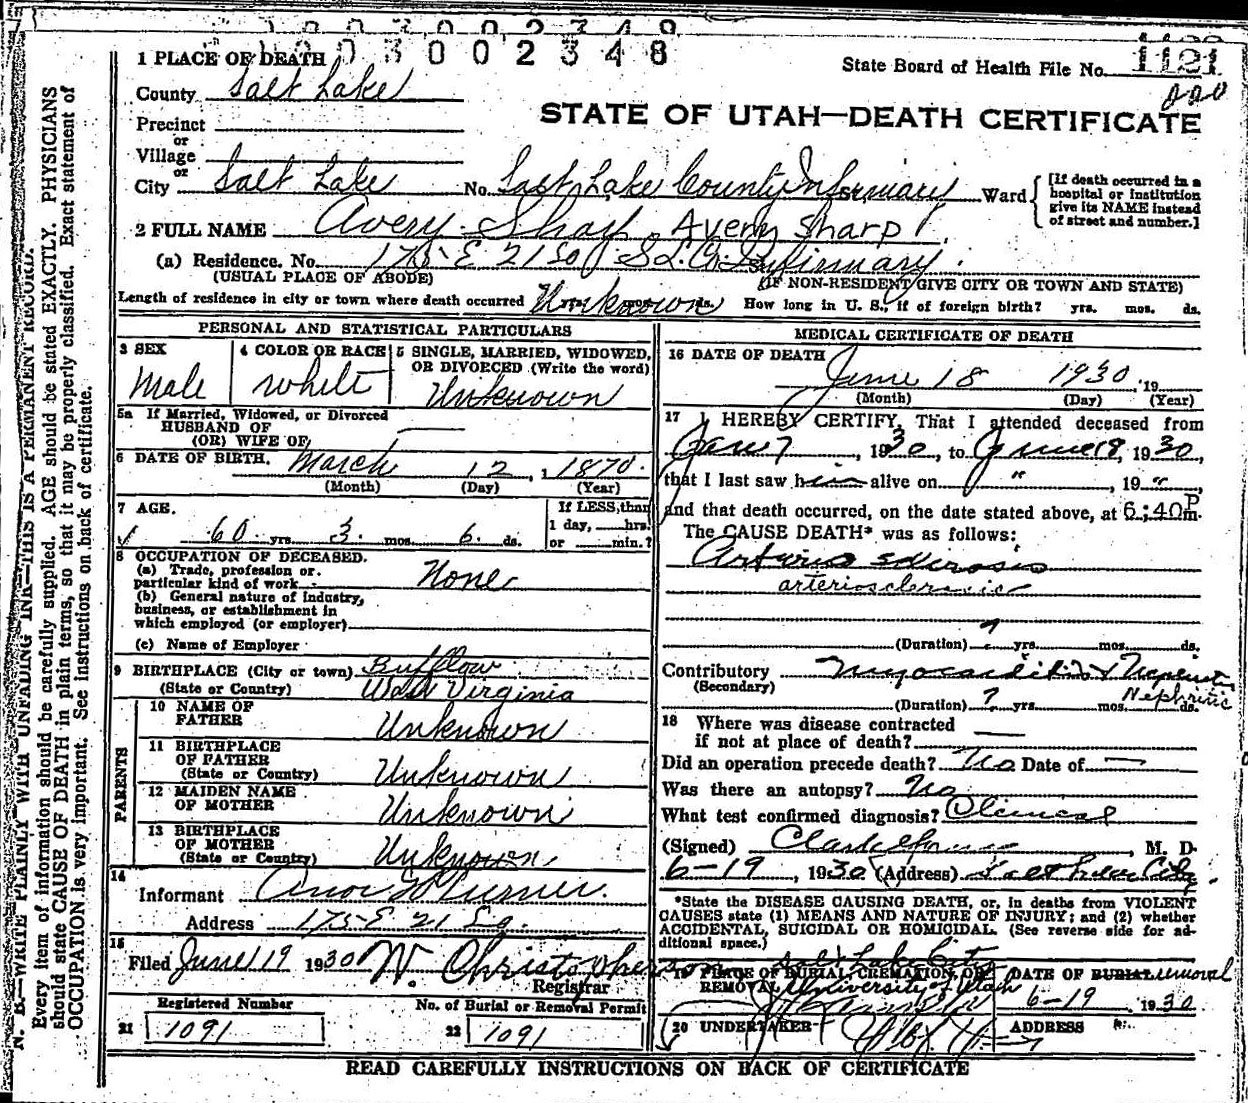 1003002348
1 PLACE OF DEATH
State Board of Health File No. 1121
County Salt Lake
Precinct
or
Village
or
City Salt Lake No. Salt Lake County Infirmary St. Ward
[If death occurred in a hospital or institution give its NAME instead of street and number.]
STATE OF UTAH—DEATH CERTIFICATE
2 FULL NAME Avery Sharp Avery Sharp
(a) Residence. No. 175 E 21 So S.L. Co. Infirmary.
(USUAL PLACE OF ABODE) (IF NON-RESIDENT GIVE CITY OR TOWN AND STATE)
Length of residence in city or town where death occurred Unknown yrs. mos. ds. How long in U. S., if of foreign birth? yrs. mos. ds.
PERSONAL AND STATISTICAL PARTICULARS
3 SEX
Male
4 COLOR OR RACE
White
5 SINGLE, MARRIED, WIDOWED,
OR DIVORCED (Write the word)
Unknown
5a If Married, Widowed, or Divorced
HUSBAND OF
(OR) WIFE OF
6 DATE OF BIRTH. March 12, 1870.
(Month) (Day) (Year)
7 AGE.
60 yrs. 3 mos. 6 ds.
If LESS than
1 day, hrs.
or min.?
8 OCCUPATION OF DECEASED.
(a) Trade, profession or.
particular kind of work None
(b) General nature of industry,
business, or establishment in
which employed (or employer)
(c) Name of Employer
9 BIRTHPLACE (City or town) Bufflow
(State or Country) West Virginia
PARENTS
10 NAME OF
FATHER Unknown
11 BIRTHPLACE
OF FATHER
(State or Country) Unknown
12 MAIDEN NAME
OF MOTHER Unknown
13 BIRTHPLACE
OF MOTHER
(State or Country) Unknown
14
Informant
Address 175 E 21 So.
15
Filed June 19 1930 W. Christopherson
Registrar
Registered Number
21 1091
No. of Burial or Removal Permit
22 1091
MEDICAL CERTIFICATE OF DEATH
16 DATE OF DEATH
June 18 1930, 19
(Month) (Day) (Year)
17 I HEREBY CERTIFY, That I attended deceased from
Jan 7, 1930, to June 18, 1930,
that I last saw him alive on " , 19 " ,
and that death occurred, on the date stated above, at 6:40 P m.
The CAUSE DEATH* was as follows:
Arterio sclerosis
arteriosclerosis
(Duration) ? yrs. mos. ds.
Contributory
(Secondary) Myocarditis & Nephritis
Nephritic
(Duration) ? yrs. mos. ds.
18 Where was disease contracted
if not at place of death?
Did an operation precede death? No Date of —
Was there an autopsy? No
What test confirmed diagnosis? Clinical
(Signed) M. D.
6-19, 1930 (Address) Salt Lake City.
*State the DISEASE CAUSING DEATH, or, in deaths from VIOLENT
CAUSES state (1) MEANS AND NATURE OF INJURY; and (2) whether
ACCIDENTAL, SUICIDAL OR HOMICIDAL. (See reverse side for ad-
ditional space.)
19 PLACE OF BURIAL, CREMATION, OR
REMOVAL Salt Lake City
University of Utah
DATE OF BURIAL removal
6-19 1930
20 UNDERTAKER
ADDRESS
READ CAREFULLY INSTRUCTIONS ON BACK OF CERTIFICATE
N. B.—WRITE PLAINLY WITH UNFADING INK—THIS IS A PERMANENT RECORD.
Every item of information should be carefully supplied. AGE should be stated EXACTLY. PHYSICIANS
should state CAUSE OF DEATH in plain terms, so that it may be properly classified. Exact statement of
OCCUPATION is very important. See instructions on back of certificate.